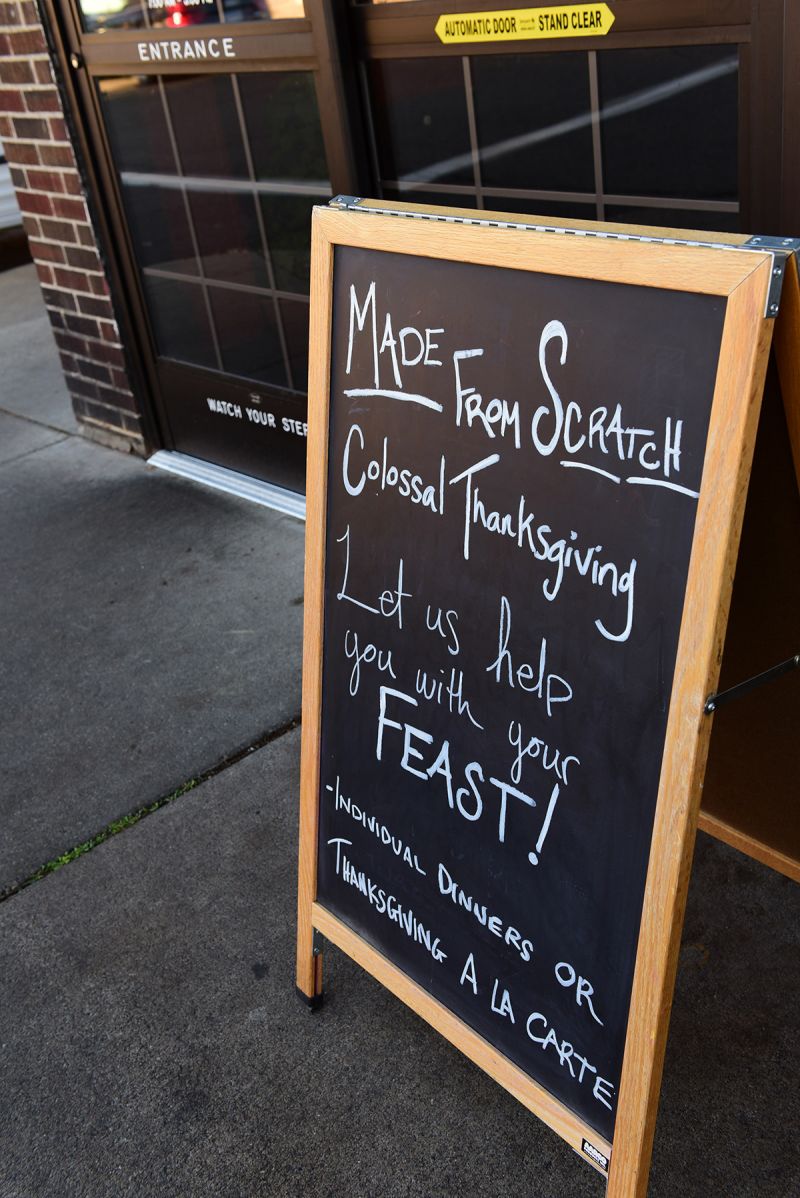 ENTRANCE
AUTOMATIC DOOR STAND CLEAR
WATCH YOUR STEP
MADE FROM SCRATCH
Colossal Thanksgiving
Let us help
you with your
FEAST!
-INDIVIDUAL DINNERS OR
THANKSGIVING A LA CARTE